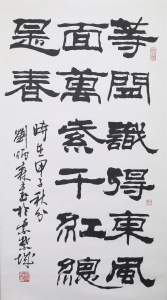 等閒識得東風
面萬紫千紅總
是春
時在甲子秋分
劉炳森